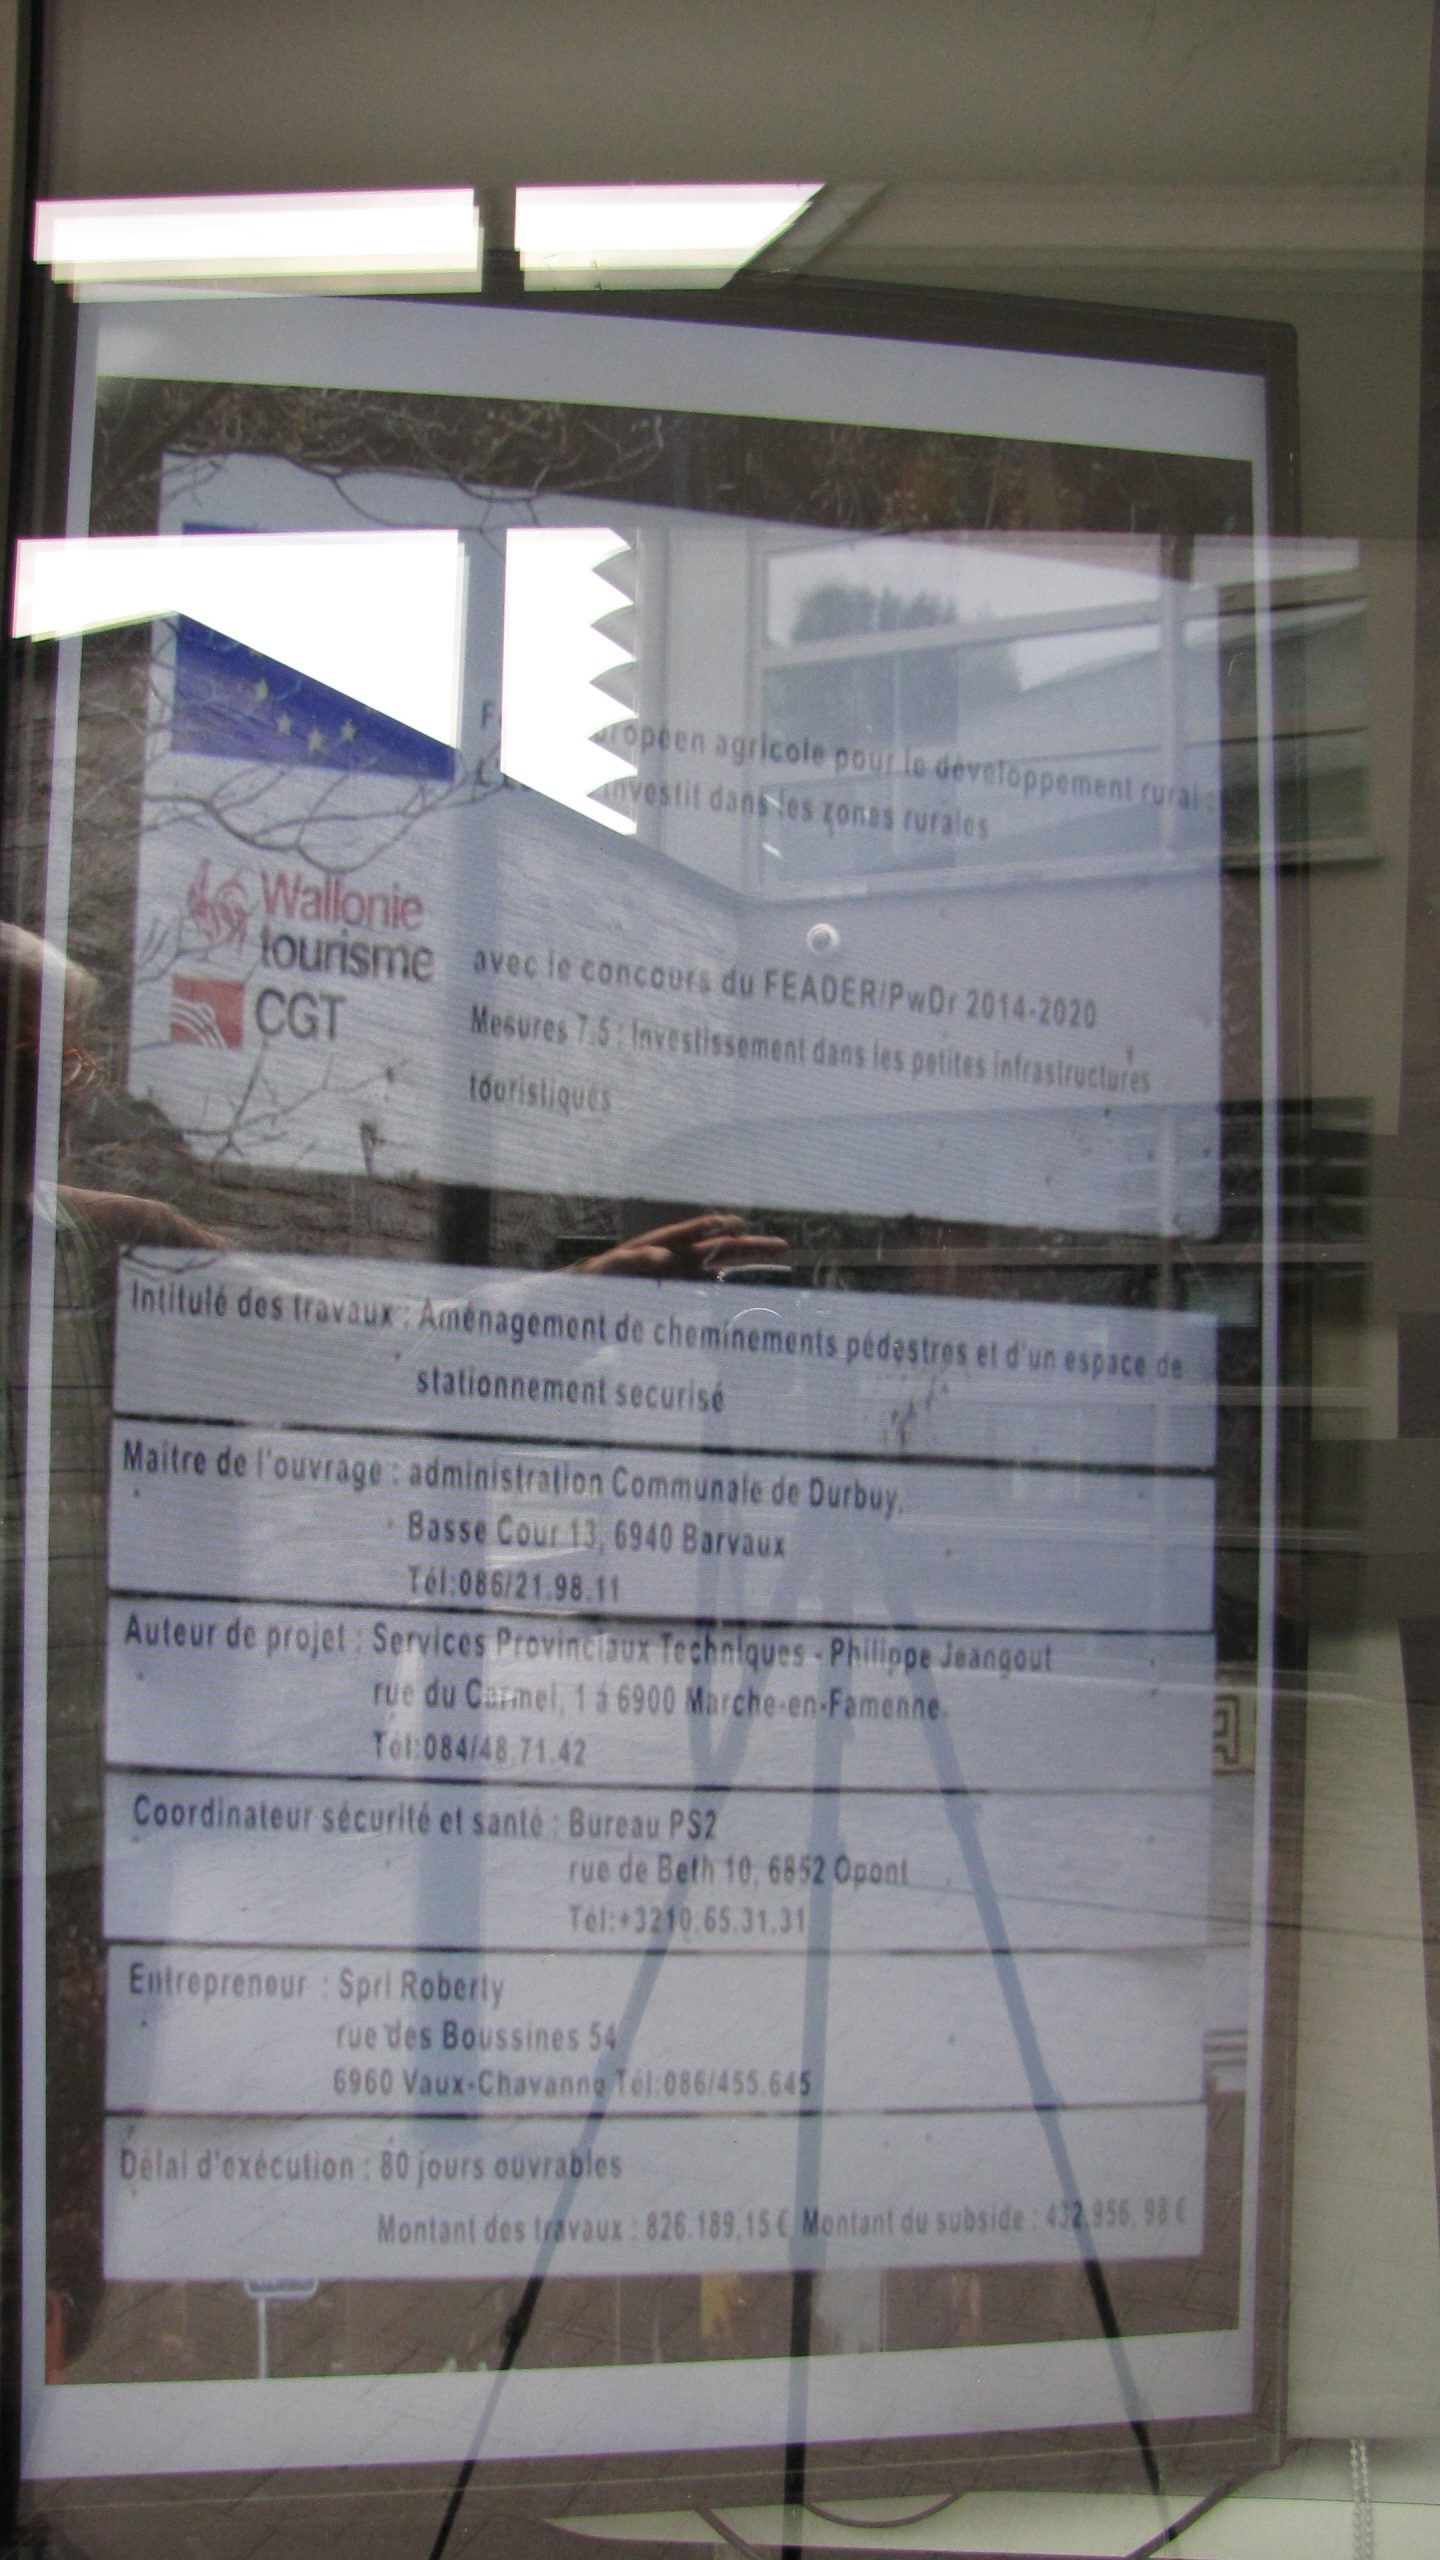 européen agricole pour le développement rural :
investit dans les zones rurales
Wallonie
tourisme
CGT
avec le concours du FEADER/PwDr 2014-2020
Mesures 7.5 : Investissement dans les petites infrastructures
touristiques
Intitulé des travaux : Aménagement de cheminements pédestres et d'un espace de
stationnement securisé
Maitre de l'ouvrage : administration Communale de Durbuy,
Basse Cour 13, 6940 Barvaux
Tél:086/21.98.11
Auteur de projet : Services Provinciaux Techniques - Philippe Jeangout
rue du Carmel, 1 à 6900 Marche-en-Famenne
Tél:084/48.71.42
Coordinateur sécurité et santé : Bureau PS2
rue de Beth 10, 6852 Opont
Tél:+3210.65.31.31
Entrepreneur : Sprl Roberty
rue des Boussines 54
6960 Vaux-Chavanne Tél:086/455.645
Délai d'exécution : 80 jours ouvrables
Montant des travaux : 826.189,15 € Montant du subside : 432.956, 98 €